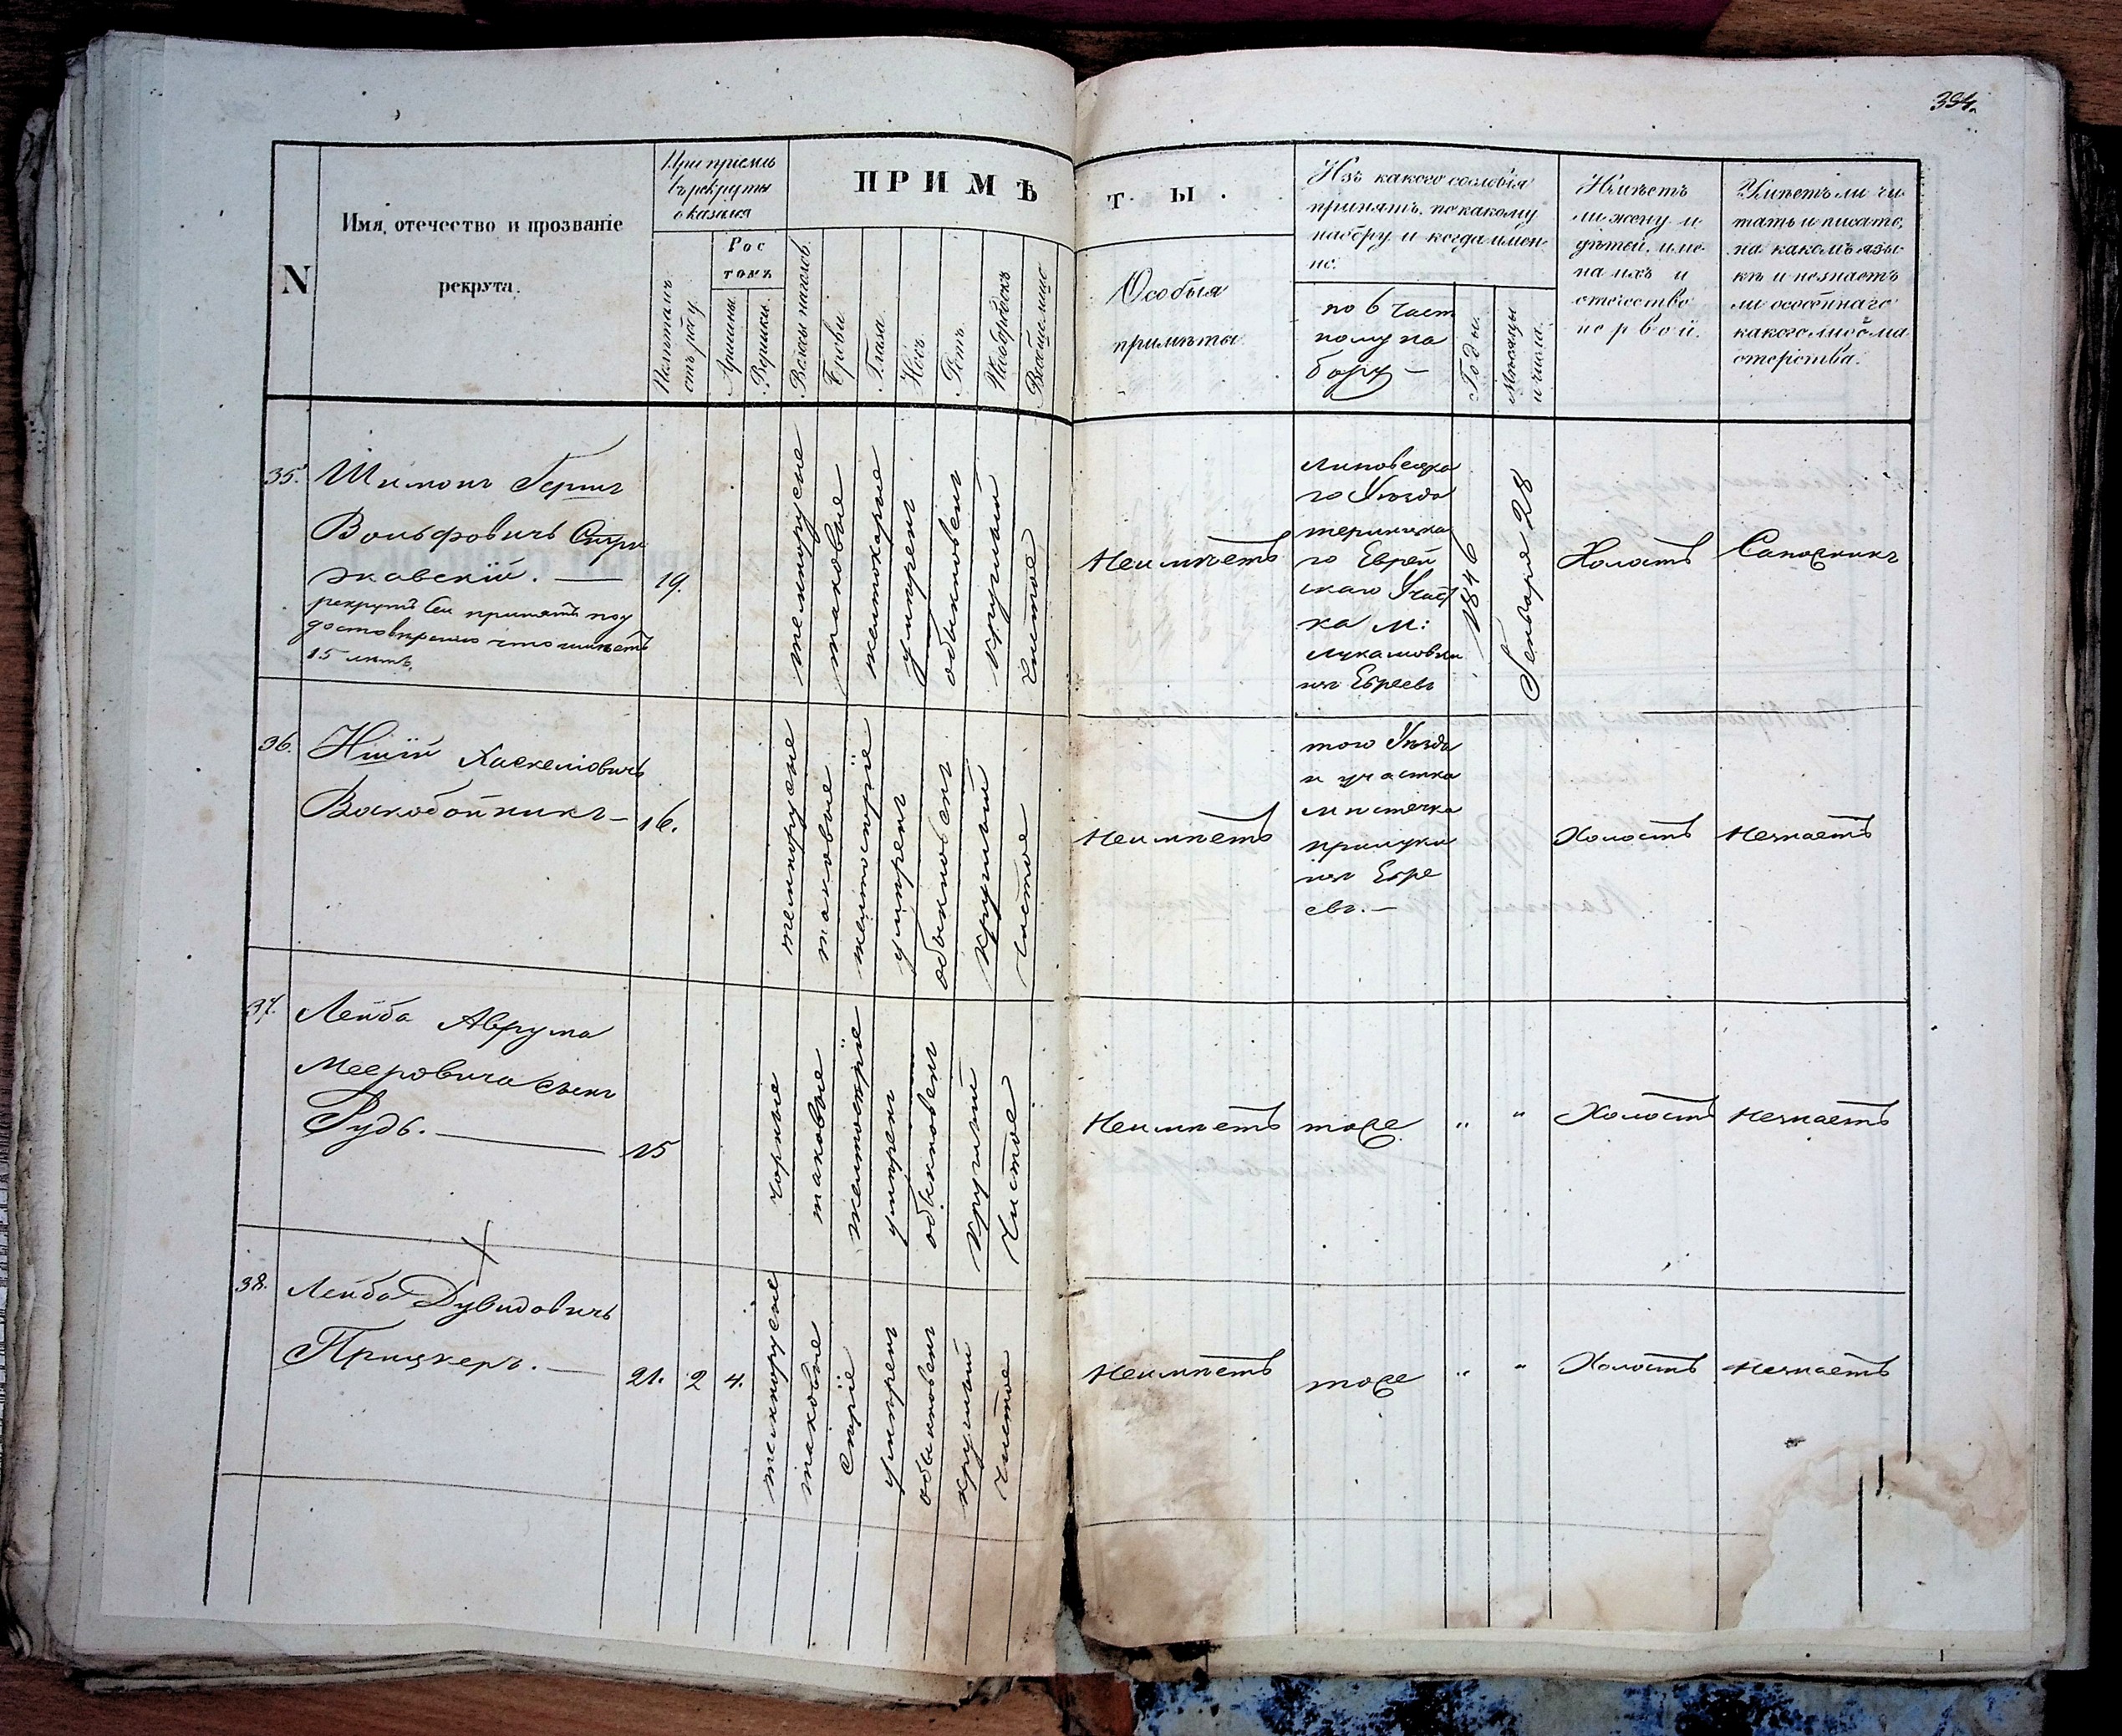 354.
N
Имя, отечество и прозваніе
рекрута.
При пріемѣ
въ рекруты
оказался
Лѣтами
отъ роду.
Рос
томъ
Аршины.
Вершки.
ПРИМѢ
Волосы на голов.
Брови.
Глаза.
Носъ.
Ротъ.
Подбородокъ
Вообще лицо
ТЫ.
Особыя
примѣты
Изъ какого сословія
принятъ, по какому
набору и когда имен-
но.
по 6 част
ному на
бору —
Годы.
Мѣсяцы
и числа.
Имѣетъ
ли жену и
дѣтей, име-
на ихъ и
отчество
первой.
Умѣетъ ли чи-
тать и писать,
на какомъ язы-
кѣ и не знаетъ
ли особеннаго
какого либо ма-
стерства.
35.
Шимонъ Герш
Вольфовичъ Стри
жавскій. —
рекрутъ сей принятъ по у
достовѣренію что имѣетъ
15 лѣтъ.
19.
темнорусые
таковые
желтокарые
умѣренъ
обыкновенъ
круглый
чистое
Неимѣетъ
Липовецка
го Уѣзда
го Еврей
скаго Участ
ка м:
изъ Евреевъ
1846
Генваря 28
Холостъ
Сапожникъ
36.
Хаскеліовичъ
Воскобойникъ —
16.
темнорусые
таковые
желтосѣрые
умѣренъ
обыкновенъ
круглый
чистое
Неимѣетъ
того Уѣзда
и участка
мѣстечка
прилуки
изъ Евре
евъ. —
Холостъ
Незнаетъ
37.
Лейба Аврума
Мееровича сынъ
Рудь. —
15
чорные
таковые
желтосѣрые
умѣренъ
обыкновенъ
круглый
Чистое
Неимѣетъ
тоже
"
"
Холостъ
Незнаетъ
38.
Лейба Дувидовичъ
Прицкеръ. —
21.
2
4.
темнорусые
таковые
сѣрые
умѣренъ
обыкновенъ
круглый
чистое
Неимѣетъ
тоже
"
"
Холостъ
Незнаетъ